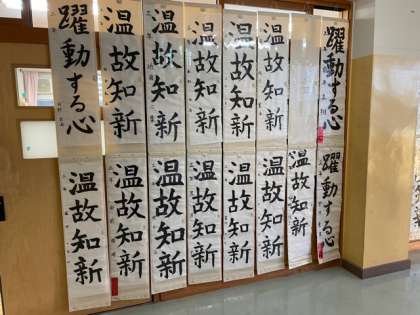 躍動する心
温故知新
温故知新
温故知新
温故知新
温故知新
躍動する心
温故知新
温故知新
温故知新
温故知新
温故知新
温故知新
温故知新
躍動する心